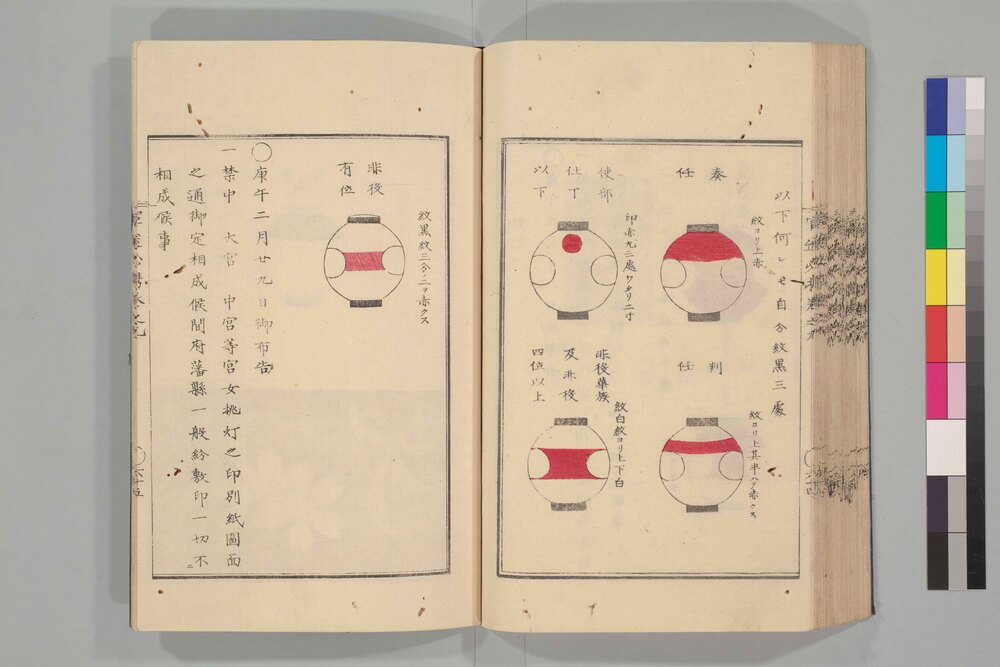 以下何レモ自分紋黒三處
奏任
紋ヨリ上赤
判任
紋ヨリ上其半ハヲ赤クス
使部
仕丁
以下
印赤丸三處ワタリ二寸
非役華族
及非役
四位以上
紋白紋ヨリ上下白
非役
有位
紋黒紋三分ノ二ヲ赤クス
〇庚午二月廿九日御布告
一禁中 大宮 中宮等宮女挑灯之印別紙圖面
之通御定相成候間府藩縣一般紛敷印一切不
相成候事